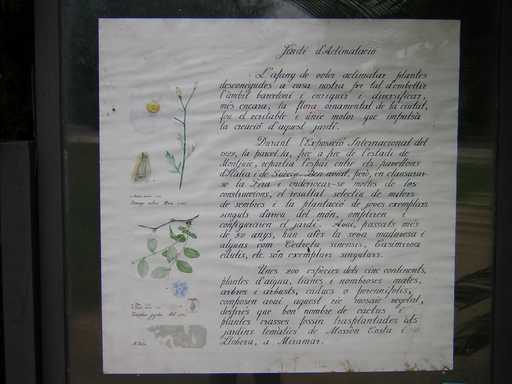 Jardí d'Aclimatació
L'afany de voler aclimatar plantes
desconegudes a casa nostra per tal d'embellir
l'àmbit barceloní i enriquir i diversificar,
més encara, la flora ornamental de la ciutat,
fou el veritable i únic motor que impulsà
la creació d'aquest jardí.
Durant l'Exposició Internacional del
1929, la parcel·la, frec a frec de l'estadi de
Montjuïc, repartia l'espai entre els pavellons
d'Itàlia i de Suècia. Ben aviat, però, en clausurar-
se la Fira i enderrocar-se moltes de les
construccions, el resultat, selecta de millers
de rombres i la plantació de joves exemplars
singuls d'arreu del món, ompliren i
configuraren el jardí. Avui, passats més
de 50 anys, han atès la seva maduresa i
alguns com Cedrela sinensis, Casimiroa
edulis, etc. són exemplars singulars.
Unes 200 espècies dels cinc continents,
plantes d'aigua, lianes i nombroses mates,
arbres i arbusts, caducs o perennifolis,
composen avui aquest ric mosaic vegetal,
després que bon nombre de cactus i
plantes crasses fossin trasplantades als
jardins temàtics de Mossèn Costa i
Llobera, a Miramar.